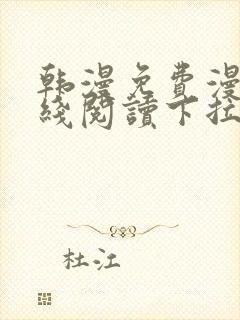 韩漫免費漫
綫閱讀下拉
杜江